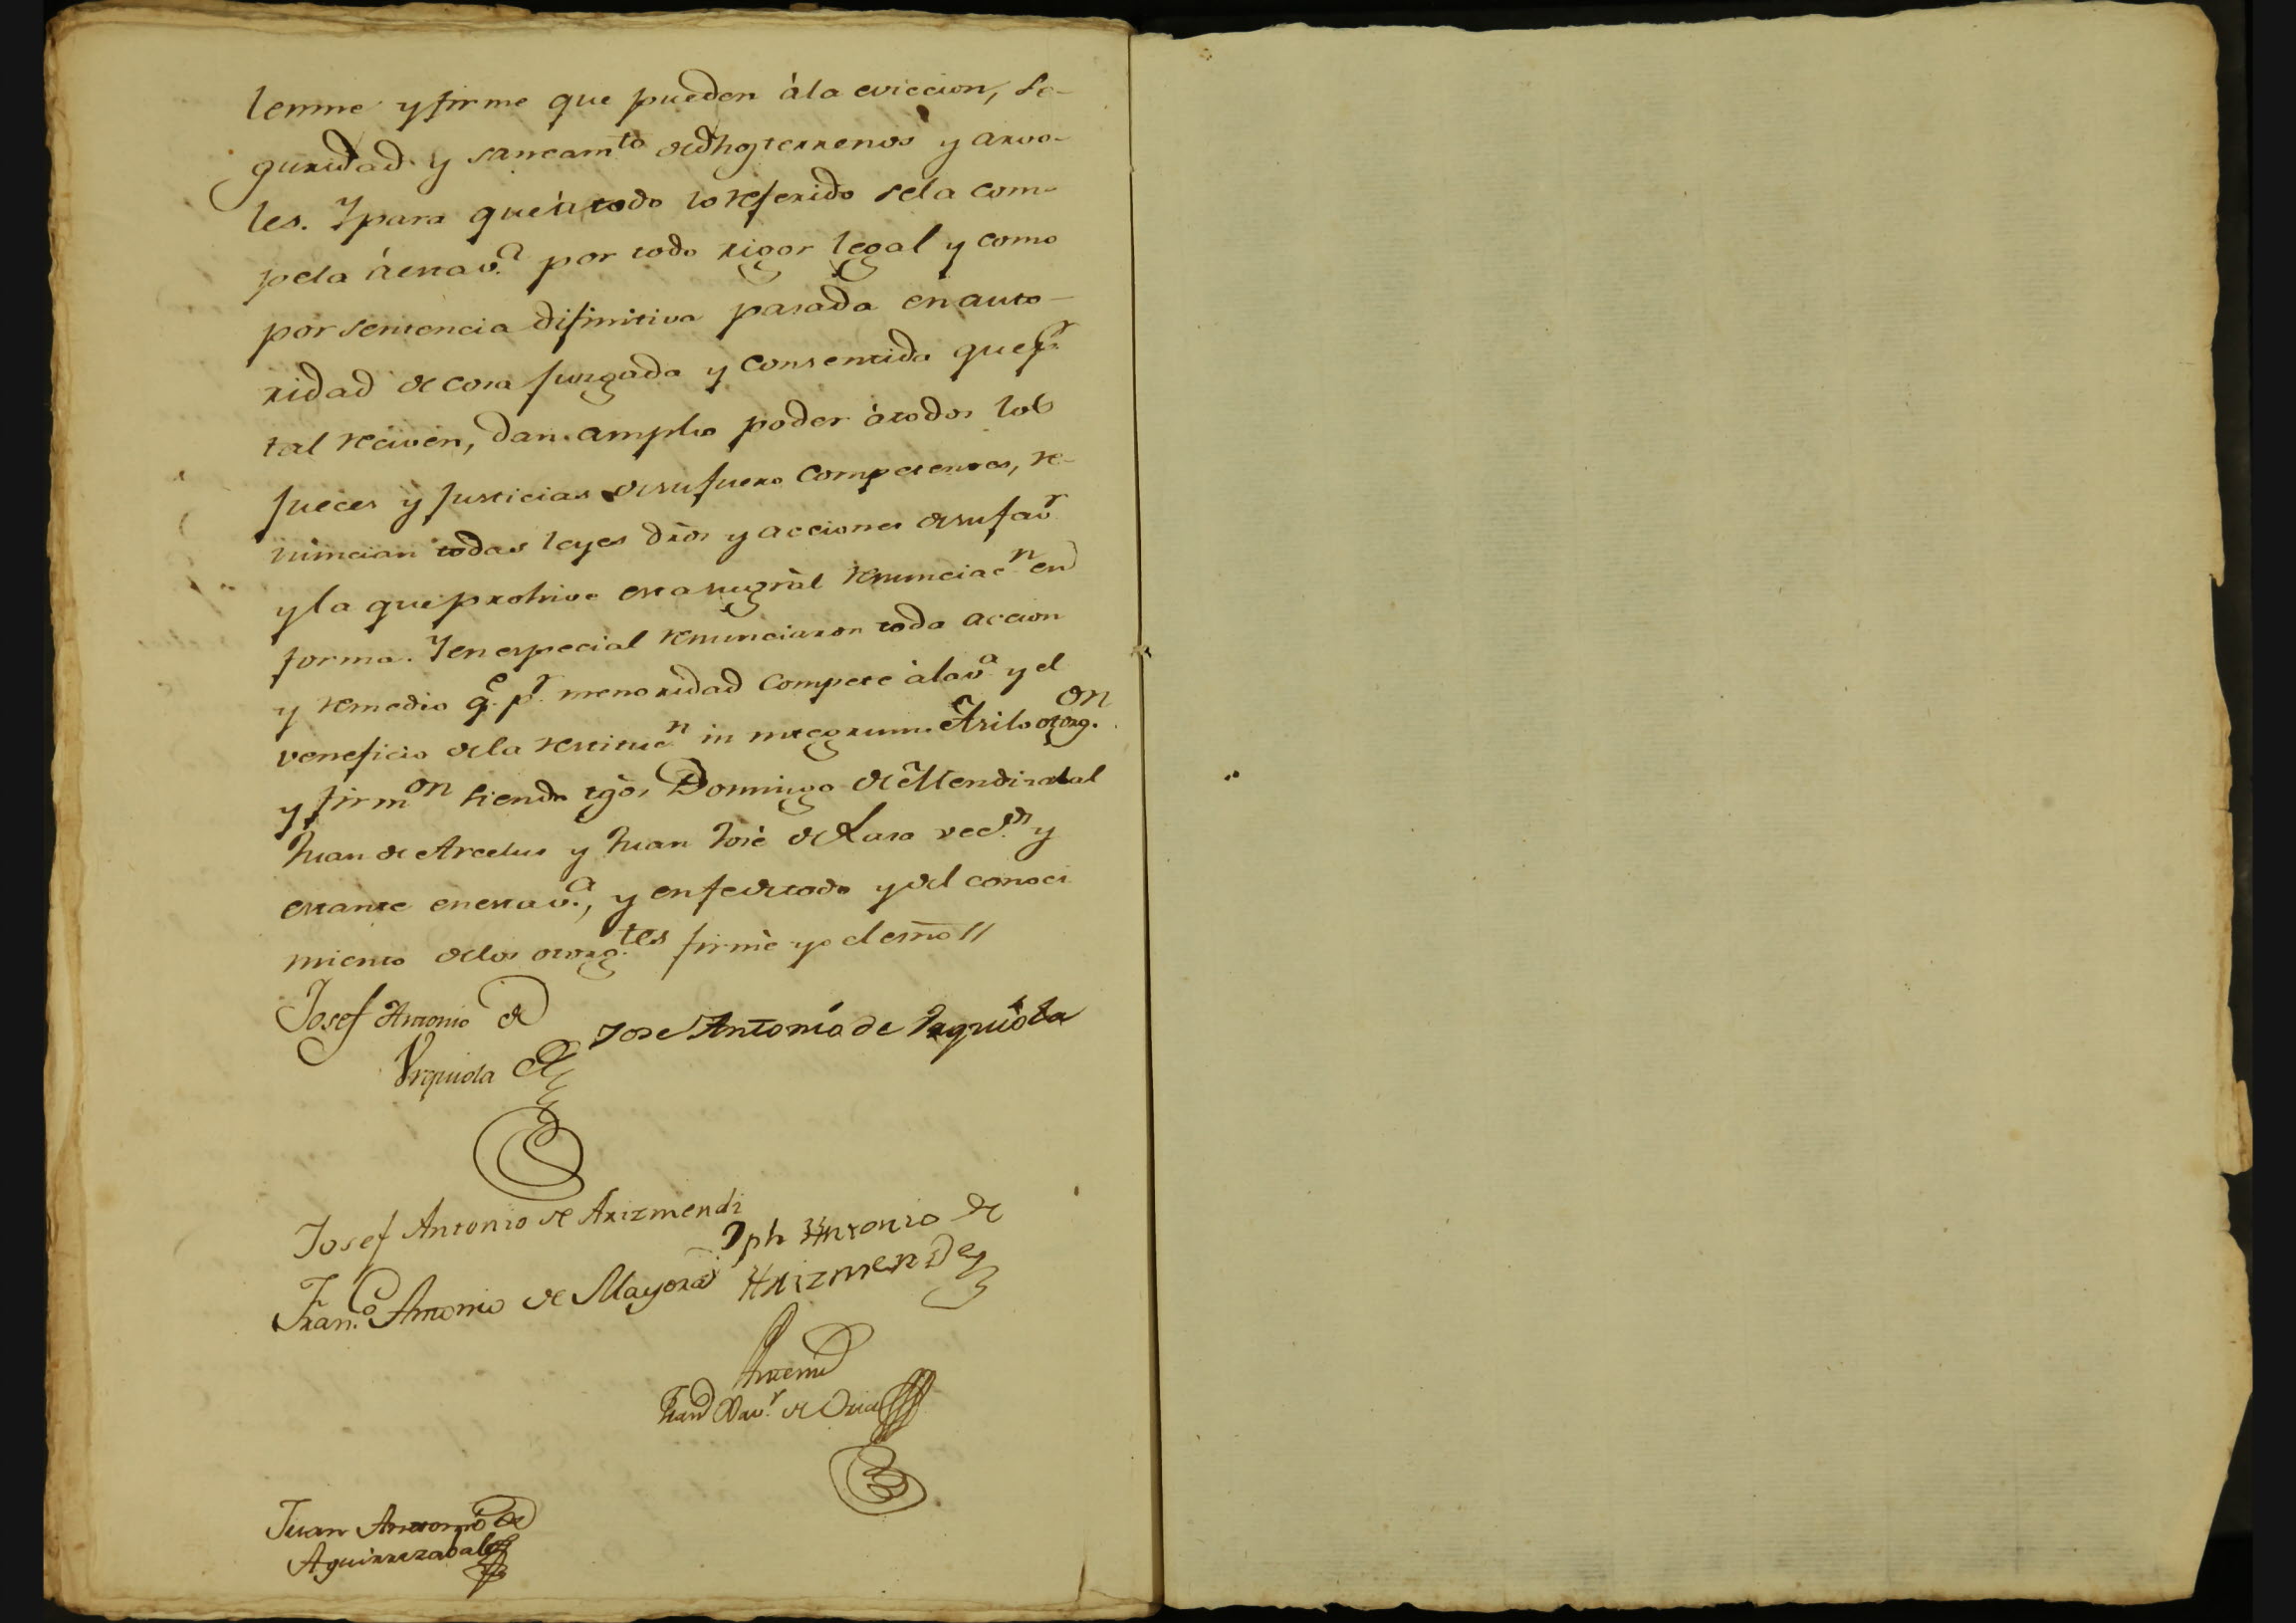 lemne y firme que pueden à la eviccion, se-
guridad y saneamto de dhos terrenos y arvo-
les. Y para que à todo lo referido se la com-
pela à esta va. por todo rigor legal y como
por sentencia difinitiva pasada en auto-
ridad de cosa juzgada y consentida que pr.
tal reciven, dan amplio poder à todos los
Jueces y Justicias de su fuero competentes, re-
nuncian todas leyes dròs y acciones de su favr
y la que prohive esta su gràl renunciacn. en
forma. Y en especial renunciaron toda accion
y remedio qe. pr. menoridad compete à la va. y el
veneficio de la restitucn in integrum. Asi lo otorg.on
y firmon siendo tgòs Domingo de Mendizabal
Juan de Arcelus y Juan Josè de Lasa vecs. y
estante en esta va., y en fee de todo y del conoci
miento de los otorg.tes firmè yo el esno //
Josef Antonio de
Urquiola
Jose Antonio de Urquiola
Josef Antonio de Arizmendi
Jph Antonio de
Arizmendi
Franco. Antonio de Mayora
Antemi
Juan Antonio de
Aguirrezabal